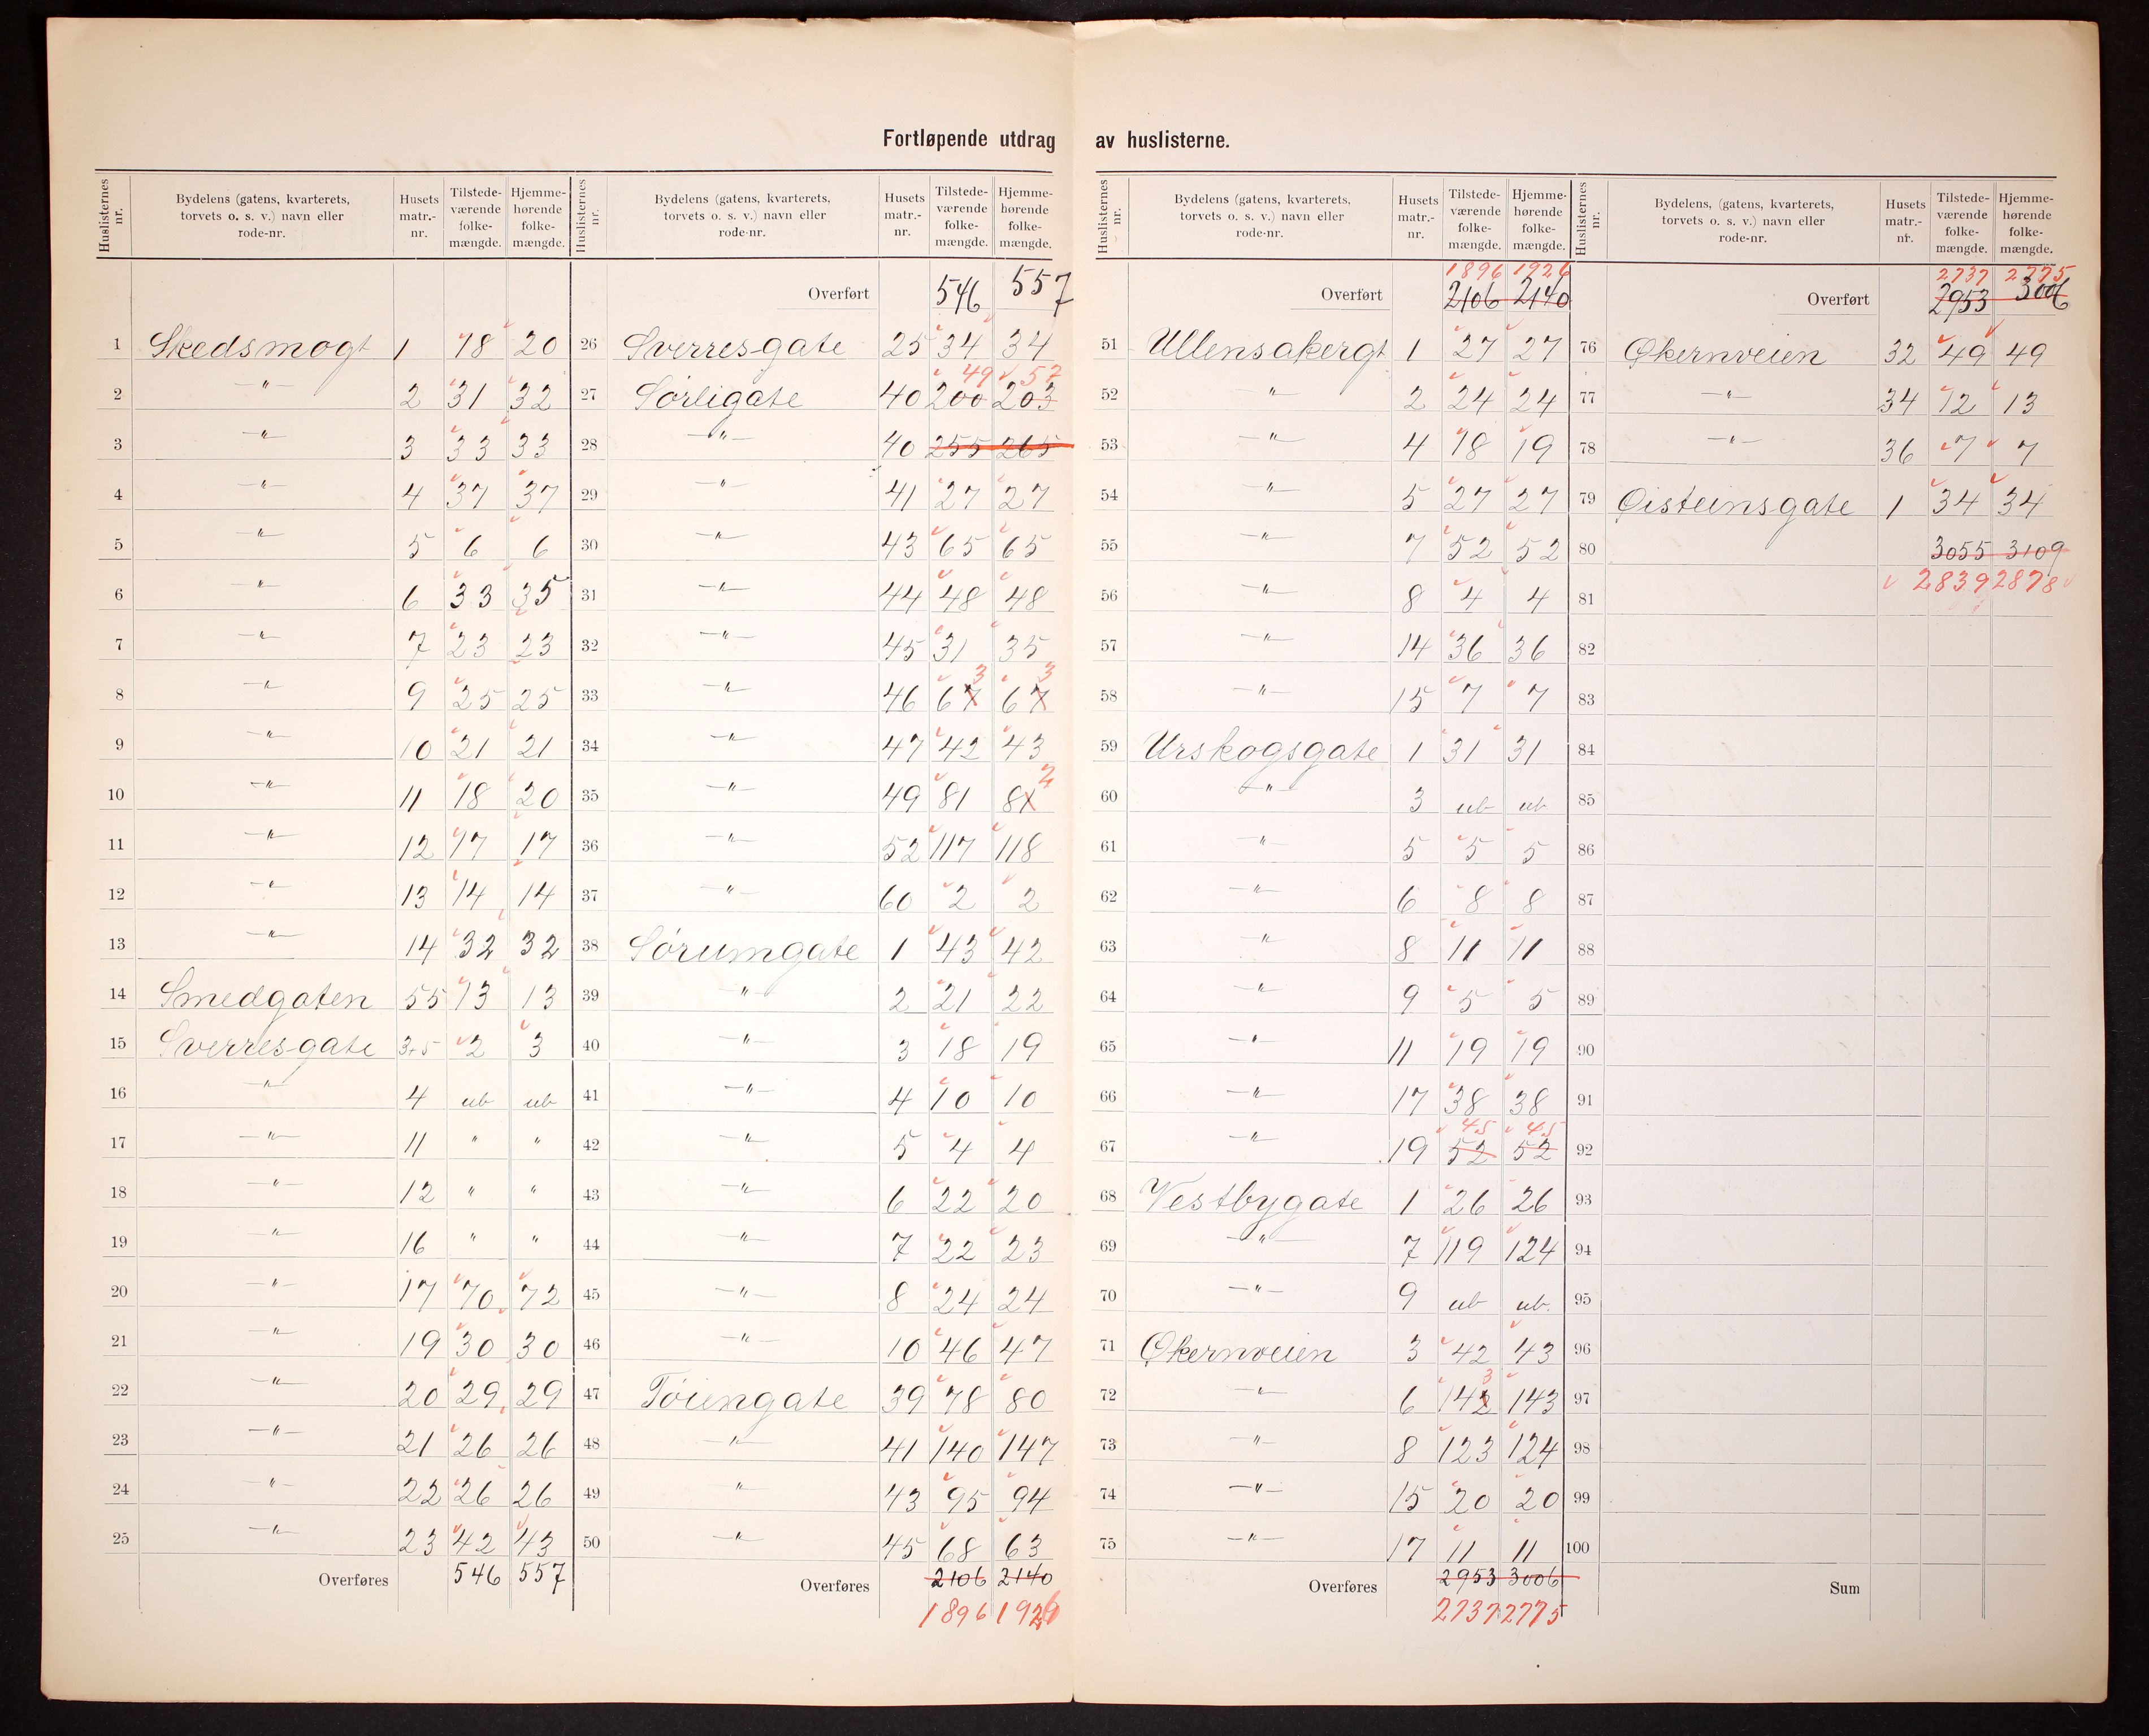 Fortløpende utdrag av huslisterne.
Huslisternes nr. | Bydelens (gatens, kvarterets, torvets o. s. v.) navn eller rode-nr. | Husets matr.-nr. | Tilstede-værende folke-mængde. | Hjemme-hørende folke-mængde.
1 Skedsmogt 1 18 20
2 —"— 2 31 32
3 —"— 3 33 33
4 —"— 4 37 37
5 —"— 5 6 6
6 —"— 6 33 35
7 —"— 7 23 23
8 —"— 9 25 25
9 —"— 10 21 21
10 —"— 11 18 20
11 —"— 12 17 17
12 —"— 13 14 14
13 —"— 14 32 32
14 Smedgaten 55 13 13
15 Sverresgate 3+5 2 3
16 —"— 4 ub ub
17 —"— 11 " "
18 —"— 12 " "
19 —"— 16 " "
20 —"— 17 70 72
21 —"— 19 30 30
22 —"— 20 29 29
23 —"— 21 26 26
24 —"— 22 26 26
25 —"— 23 42 43
Overføres 546 557
Huslisternes nr. | Bydelens (gatens, kvarterets, torvets o. s. v.) navn eller rode-nr. | Husets matr.-nr. | Tilstede-værende folke-mængde. | Hjemme-hørende folke-mængde.
Overført 546 557
26 Sverresgate 25 34 34
49 57
27 Sørligate 40 200 203
28 —"— 40 255 265
29 —"— 41 27 27
30 —"— 43 65 65
31 —"— 44 48 48
32 —"— 45 31 35
3 3
33 —"— 46 67 67
34 —"— 47 42 43
2
35 —"— 49 81 81
36 —"— 52 117 118
37 —"— 60 2 2
38 Sørumgate 1 43 42
39 —"— 2 21 22
40 —"— 3 18 19
41 —"— 4 10 10
42 —"— 5 4 4
43 —"— 6 22 20
44 —"— 7 22 23
45 —"— 8 24 24
46 —"— 10 46 47
47 Tøiengate 39 78 80
48 —"— 41 140 147
49 " 43 95 94
50 —"— 45 68 63
Overføres 2106 2140
1896 1926
Huslisternes nr. | Bydelens (gatens, kvarterets, torvets o. s. v.) navn eller rode-nr. | Husets matr.-nr. | Tilstede-værende folke-mængde. | Hjemme-hørende folke-mængde.
1896 1926
Overført 2106 2140
51 Ullensakergt 1 27 27
52 " 2 24 24
53 —"— 4 18 19
54 —"— 5 27 27
55 —"— 7 52 52
56 —"— 8 4 4
57 —"— 14 36 36
58 —"— 15 7 7
59 Urskogsgate 1 31 31
60 —"— 3 ub ub
61 —"— 5 5 5
62 —"— 6 8 8
63 —"— 8 11 11
64 —"— 9 5 5
65 —"— 11 19 19
66 —"— 17 38 38
45 45
67 —"— 19 52 52
68 Vestbygate 1 26 26
69 —"— 7 119 124
70 —"— 9 ub ub.
71 Økernveien 3 42 43
3
72 —"— 6 142 143
73 —"— 8 123 124
74 —"— 15 20 20
75 —"— 17 11 11
Overføres 2953 3006
2737 2775
Huslisternes nr. | Bydelens, (gatens, kvarterets, torvets o. s. v.) navn eller rode-nr. | Husets matr.-nr. | Tilstede-værende folke-mængde. | Hjemme-hørende folke-mængde.
2737 2775
Overført 2953 3006
76 Økernveien 32 49 49
77 —"— 34 12 13
78 —"— 36 7 7
79 Øisteinsgate 1 34 34
80 3055 3109
2839 2878
81
82
83
84
85
86
87
88
89
90
91
92
93
94
95
96
97
98
99
100
Sum